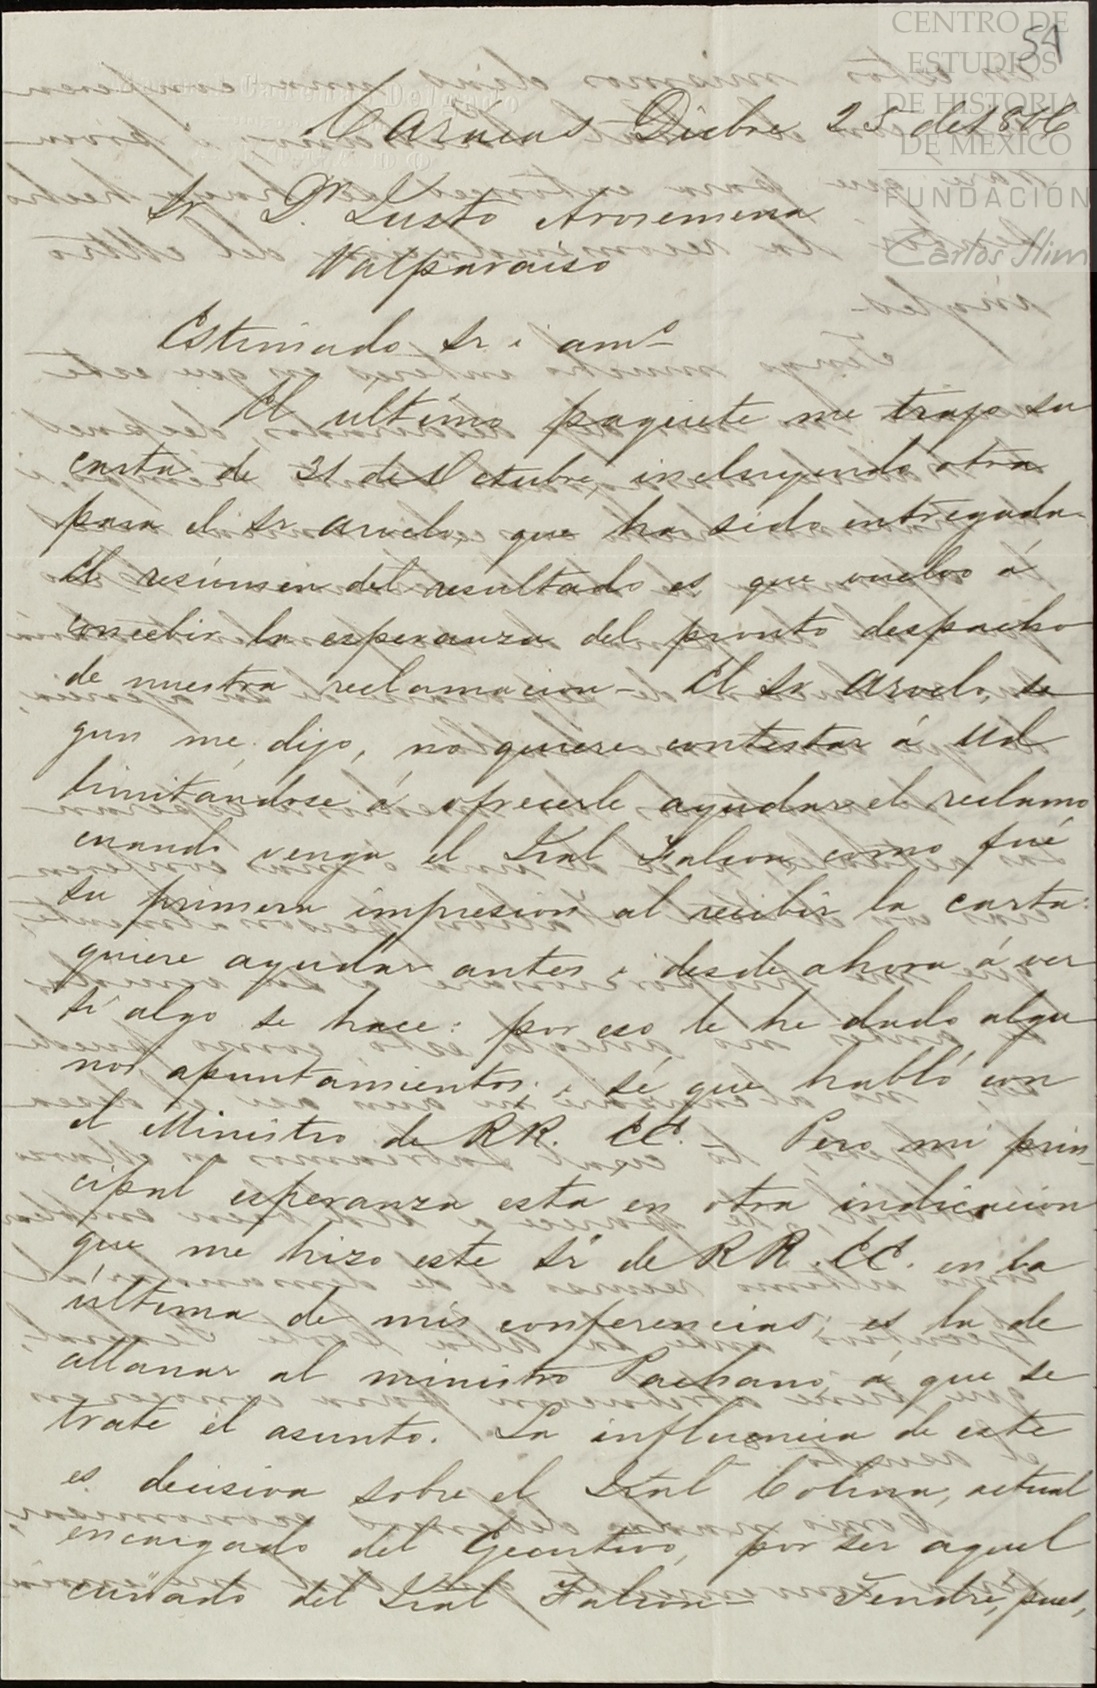 CENTRO DE
ESTUDIOS
DE HISTORIA
DE MÉXICO
FUNDACIÓN
Carlos Slim
54
Caracas Dicbre 25 de 1866
Sr Dr. Justo Arosemena
Valparaiso
Estimado Sr. i amo
El último paquete me trajo su
carta de 31 de Octubre, incluyendo otra
para el Sr Arvelo, que ha sido entregada.
El resúmen del resultado es que vuelvo á
concebir la esperanza del pronto despacho
de nuestra reclamacion - El Sr Arvelo, se
gun me dijo, no quiere contestar á Ud
limitándose á ofrecerle ayudar el reclamo
cuando venga el Jral Falcon como fué
su primera impresion al recibir la carta:
quiere ayudar antes i desde ahora á ver
si algo se hace: por eso le he dado algu
nos apuntamientos, i sé que habló con
el Ministro de RR. EE. - Pero mi prin-
cipal esperanza esta en otra indicacion
que me hizo este Sr de RR. EE. en la
última de mis conferencias; es la de
allanar al ministro Pachano á que se
trate el asunto. La influencia de este
es decisiva sobre el Jral Colina, actual
encargado del Ejecutivo, por ser aquel
cuñado del Jral Falcon - Tendré, pues,